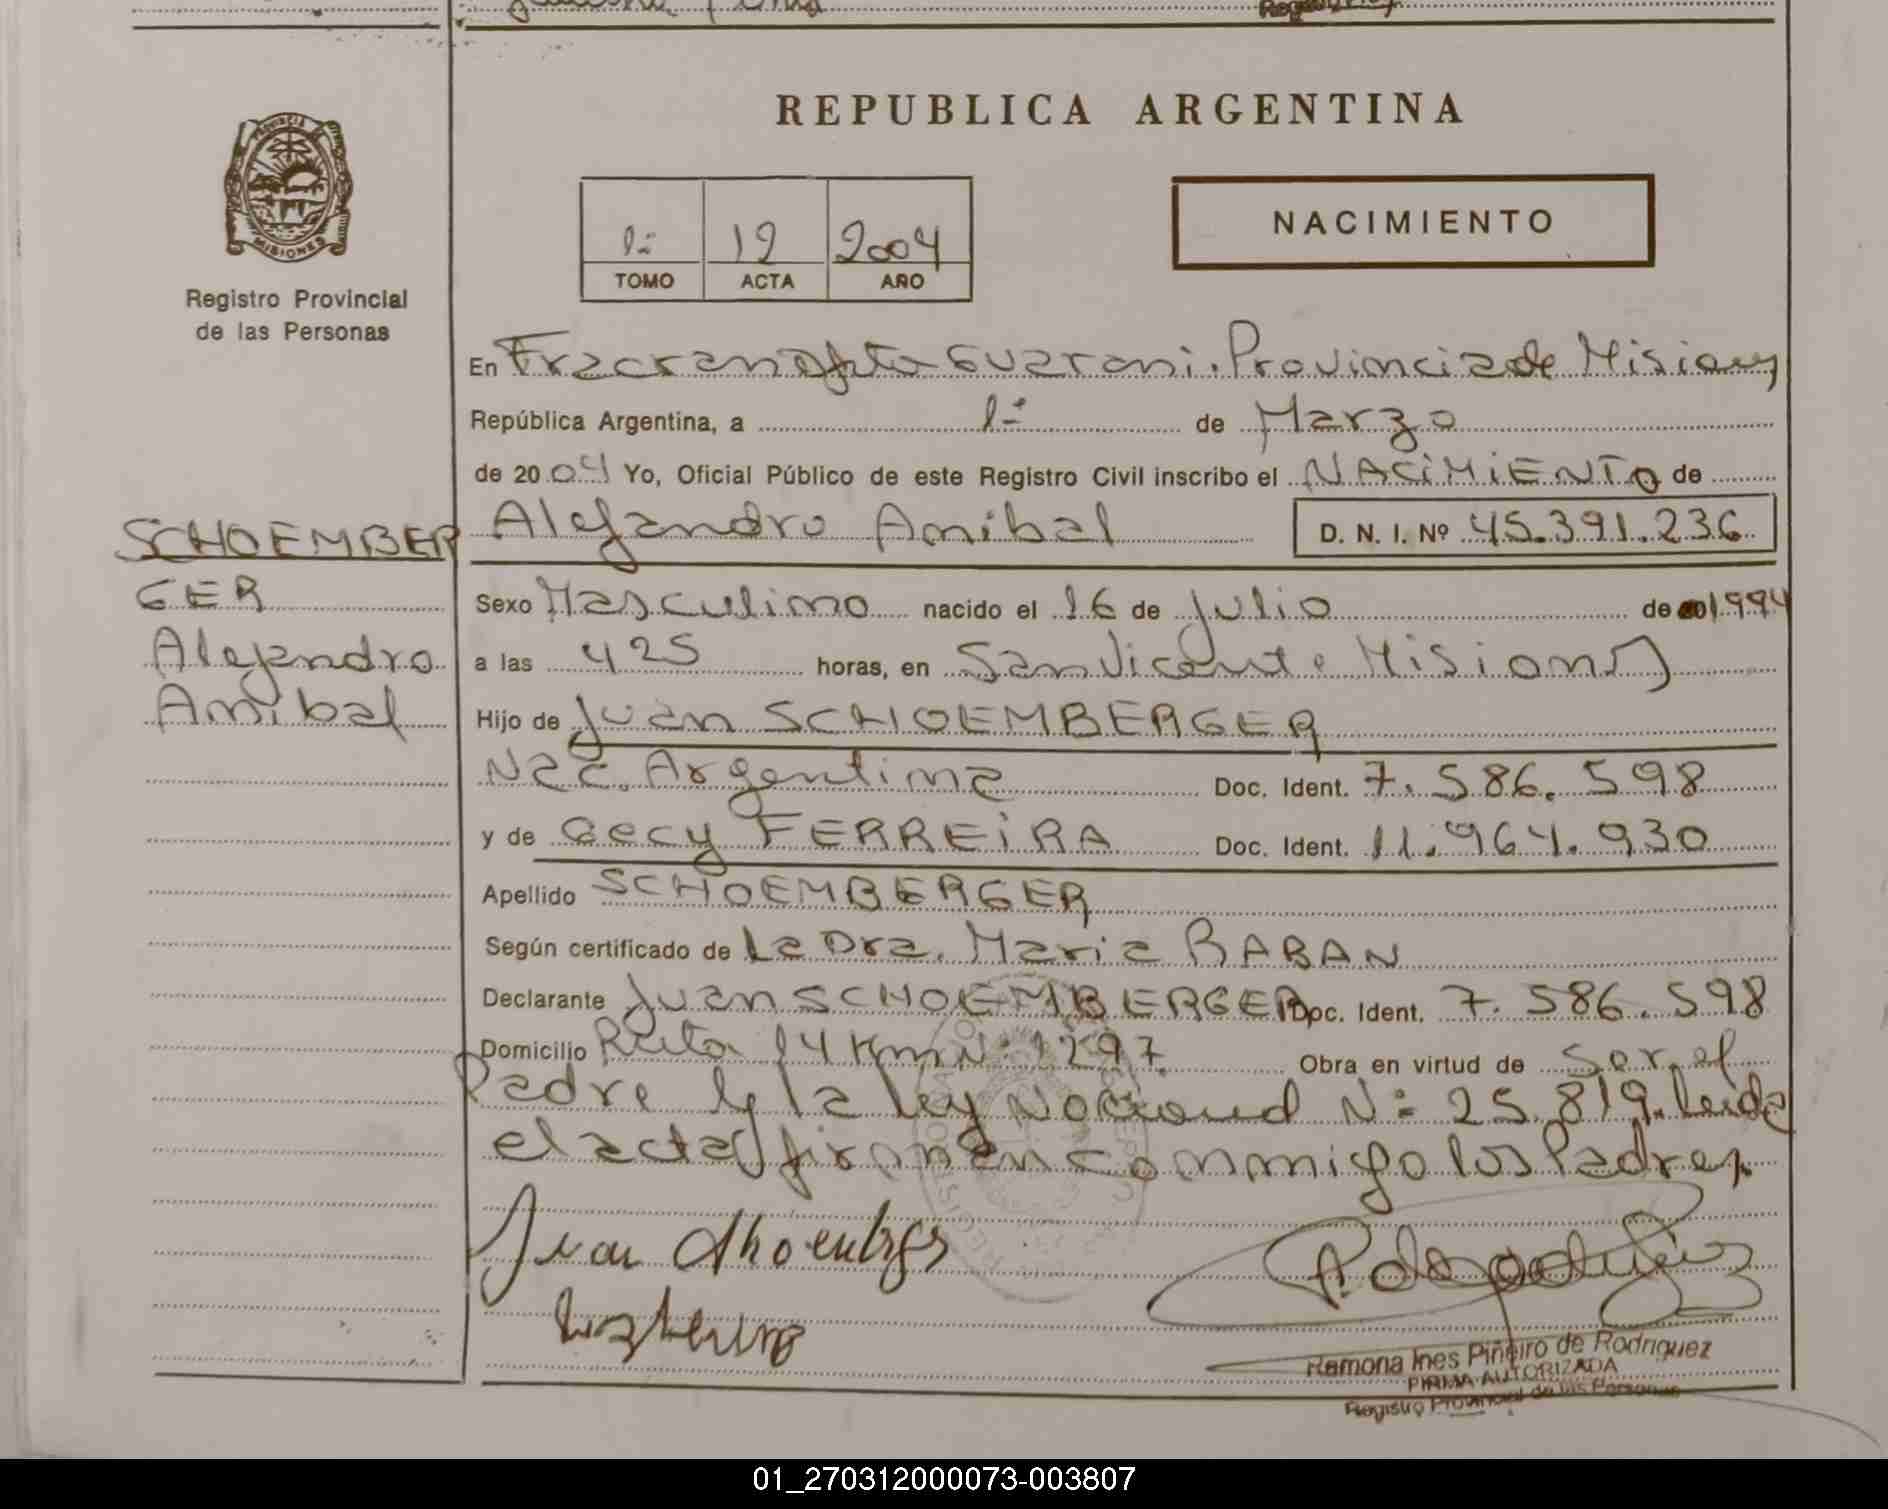 REPUBLICA ARGENTINA
PROVINCIA DE
MISIONES
Registro Provincial
de las Personas
1º 12 2004
TOMO ACTA AÑO
NACIMIENTO
En Fracran Dpto Guarani. Provincia de Misiones
República Argentina, a 1º de Marzo
de 2004 Yo, Oficial Público de este Registro Civil inscribo el NACIMIENTO de
Alejandro Anibal D. N. I. Nº 45.391.236
SCHOEMBER
GER
Alejandro
Anibal
Sexo Masculino nacido el 16 de Julio de 1994
a las 425 horas, en San Vicente Misiones
Hijo de Juan SCHOEMBERGER
Nac. Argentina Doc. Ident. 7.586.598
y de Gecy FERREIRA Doc. Ident. 11.964.930
Apellido SCHOEMBERGER
Según certificado de La Dra. Maria BABAN
Declarante Juan SCHOEMBERGER Doc. Ident. 7.586.598
Domicilio Ruta 14 Km Nº 1297. Obra en virtud de Ser el
Padre y la ley Nacional Nº 25.819. Leida
el acta firman conmigo los Padres.
Juan
Ramona Ines Piñeiro de Rodriguez
FIRMA AUTORIZADA
Registro Provincial de las Personas
01_270312000073-003807